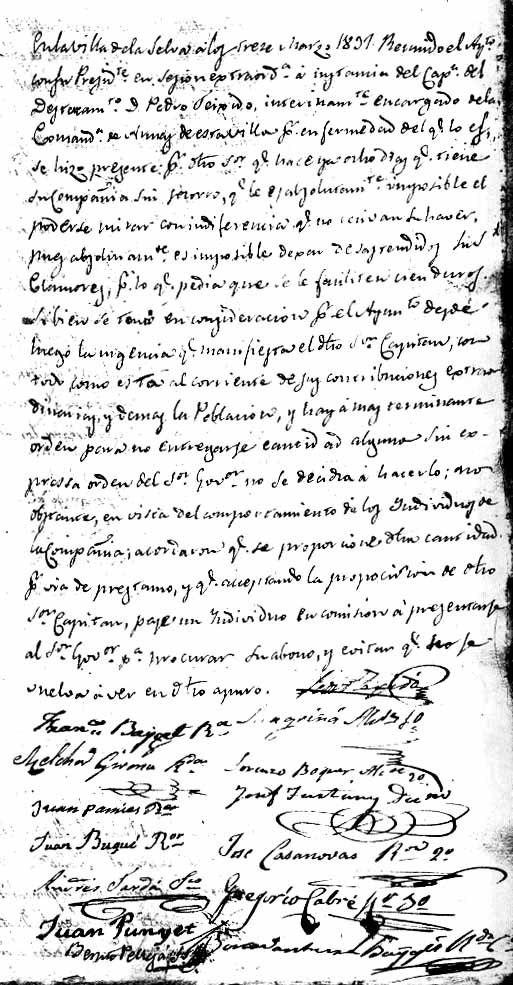 En la Villa de la Selva a los trese Marzo 1837. Reunido el Ayto
con su Presidte en sesion extraorda á instancia del Capn del
Destacamto D. Pedro Teixido, interinamte encargado de la
Comanda de Armas de esta Villa pr enfermedad del qe lo es,
se hizo presente pr dho Sor qe hace ya ocho dias qe tiene
su Compañia sin socorro, qe le es absolutamte imposible el
poderse mirar con indiferencia qe no recivan su haver,
pues absolutamte es imposible dexar desatendidos sus
Clamores, pr lo qe pedia que se le faciliten cien duros.
Si bien se tomó en consideracion pr el Ayunto desde
luego la urgencia qe manifiesta el dho Sor Capitan, con
todo como esta al corriente de sus contribuciones extraor
dinarias, y demas la Poblacion, y hay á mas terminante
orden para no entregarse cantidad alguna sin ex-
pressa orden del Sor Govor no se decidia á hacerlo; no
obstante, en vista del comportamiento de los Individuos de
la Compañia; acordaron qe se proporcione dha cantidad
pr via de prestamo, y qe aceptando la proposicion de dho
Sor Capitan, pase un Individuo en comision á presentarse
al Sor Govor pa procurar su abono, y evitar qe no se
vuelva á ver en dho apuro.
Franco Bajget Ror
Melchor Girona Ror Lorenzo Boquer
Juan Pamies Ror Josef Fortuny
Juan Buqué Ror Jose Casanovas Ror 2o
Andres Sardá Gregorio Cabré Ror 3o
Juan Punyet
Benito Pellejá Buenaventura